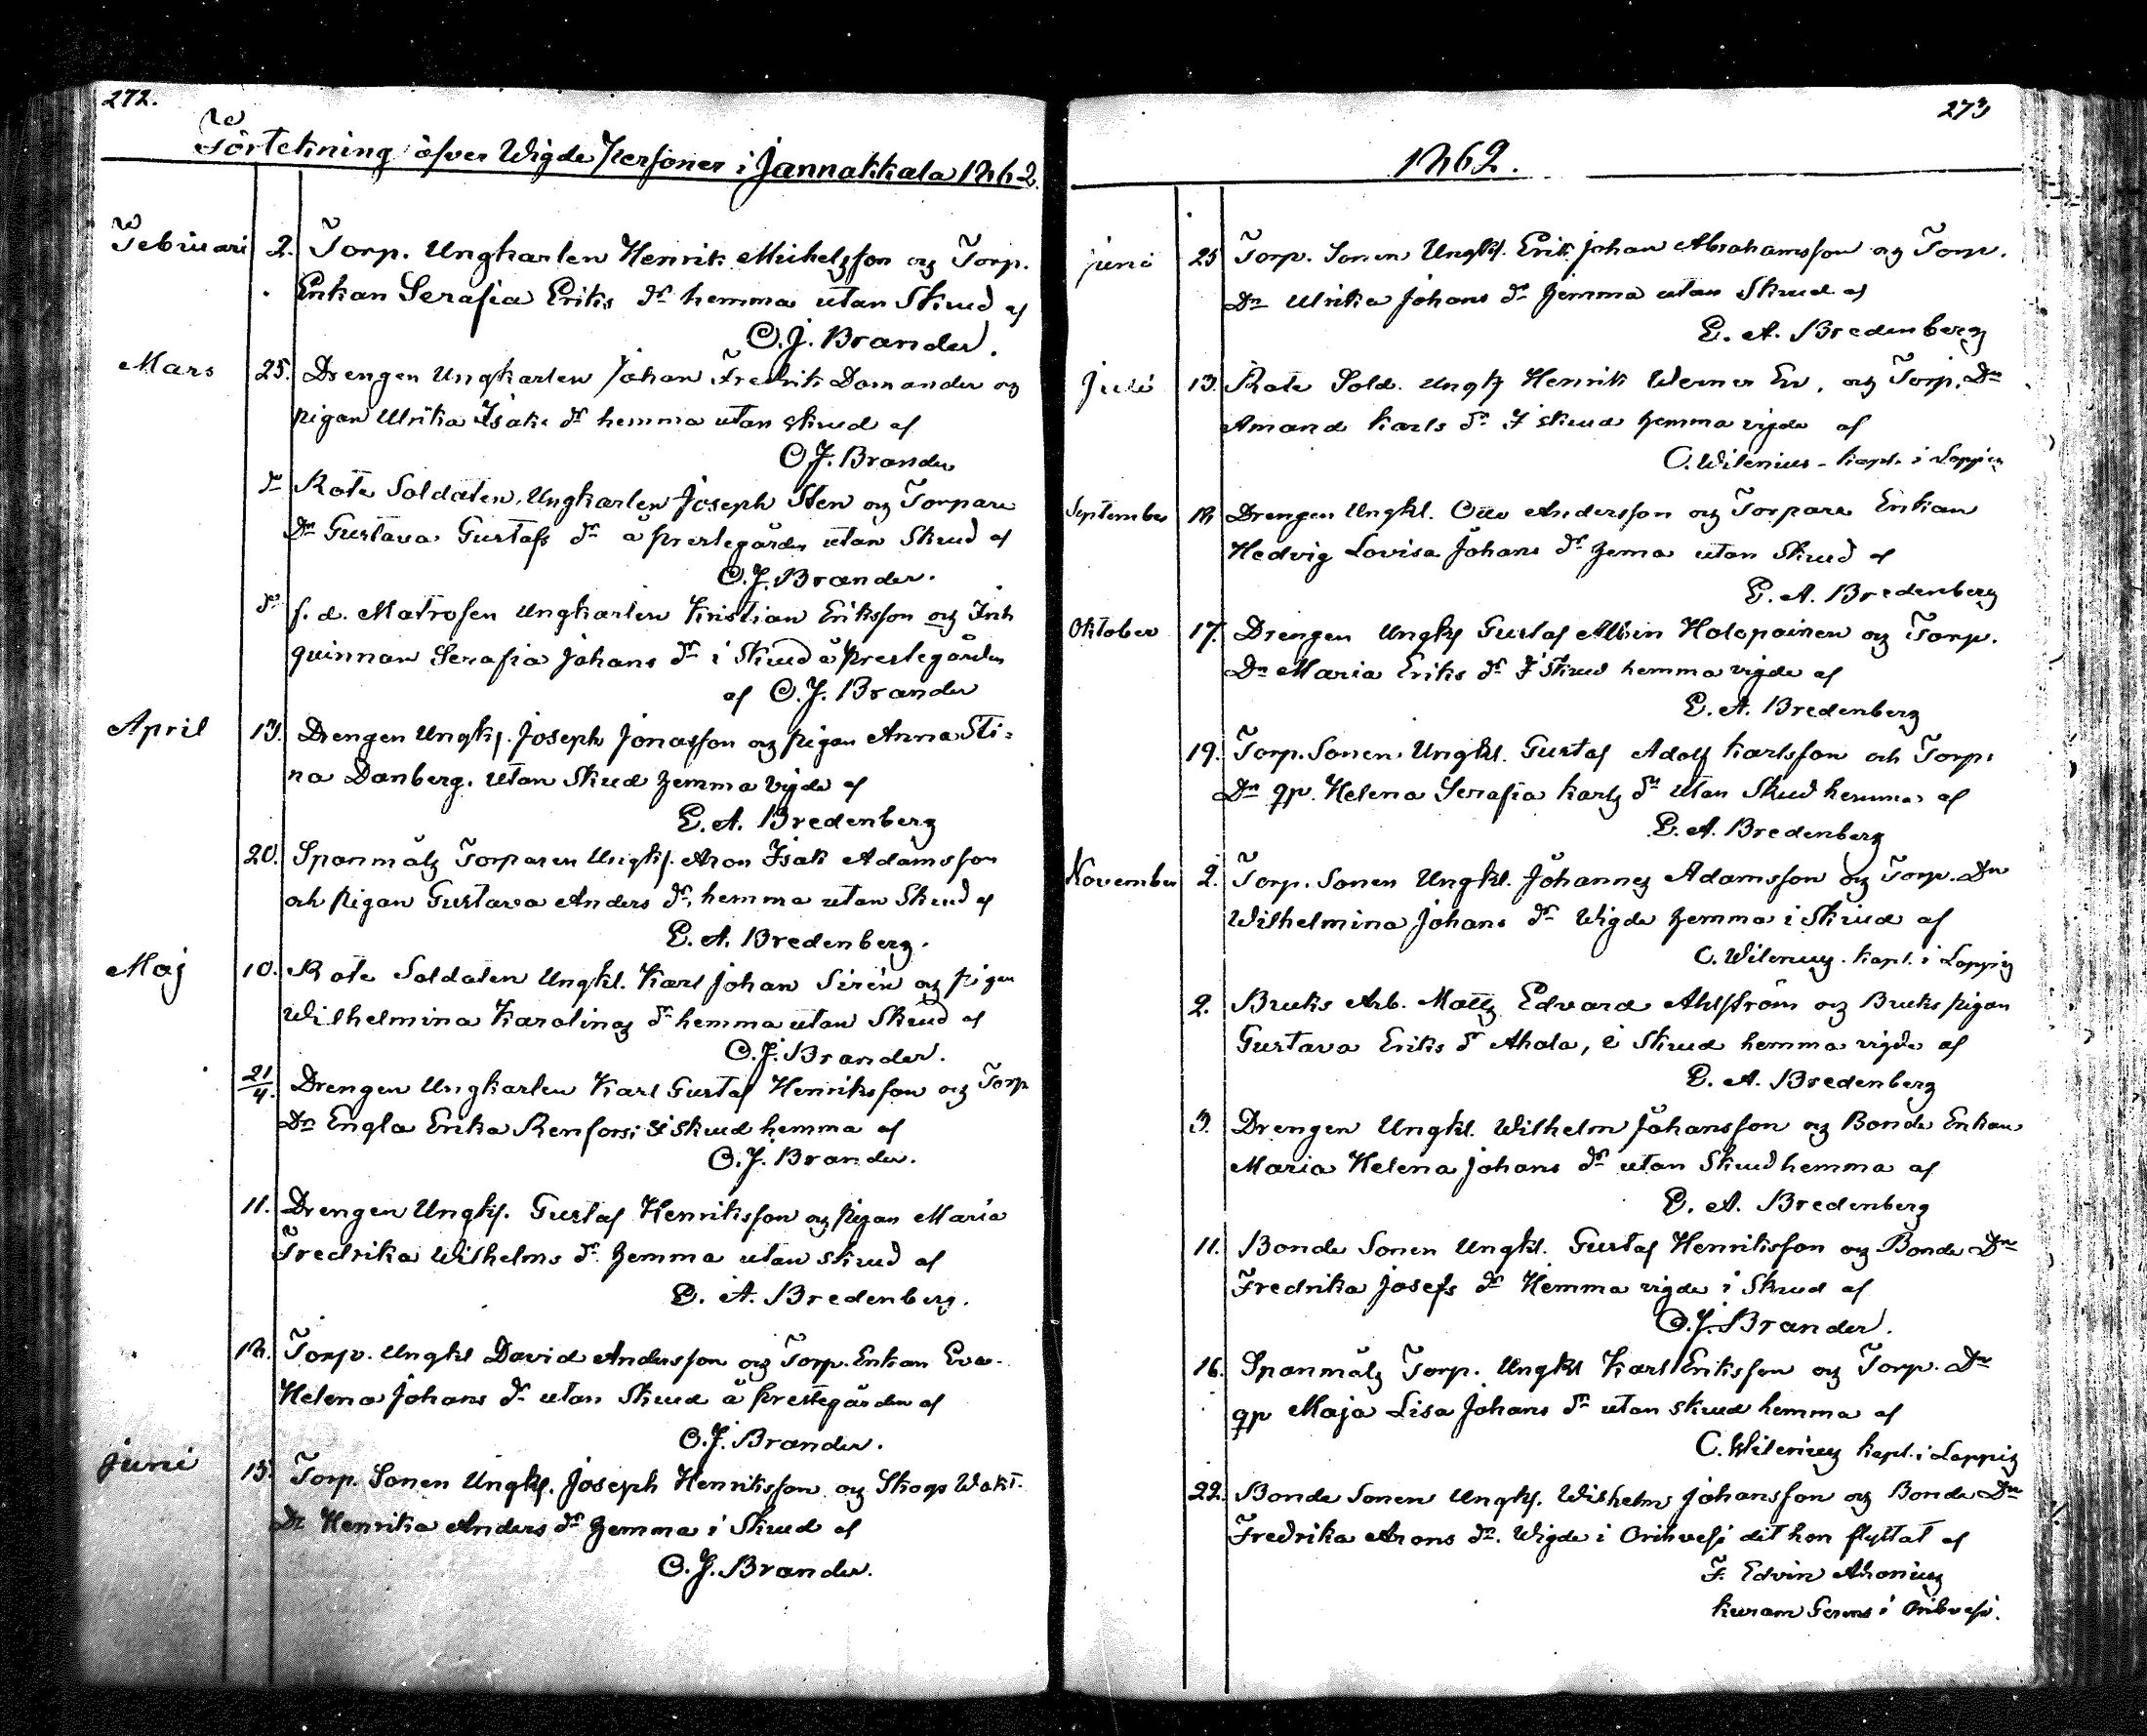 272.
Förtekning öfver Wigde Personer i Jannakkala 1862.
Februari 2. Torp. Ungkarlen Henrik Michelsson og Torp.
Enkan Serafia Eriks dr hemma utan Skrud af
O.J. Brander.
Mars 25. Drengen Ungkarlen Johan Fredrik Domander og
pigan Ulrika Isaks dr hemma utan skrud af
O.J. Brander
do Rote Soldaten, Ungkarlen Joseph Sten og Torpare
Dn Gustava Gustafs dr å prestegården utan Skrud af
O.J. Brander.
do f. d. Matrosen Ungkarlen Kristian Eriksson og Inh
quinnan Serafia Johans dr i Skrud å prestegården
af O.J. Brander
April 13. Drengen Ungkl. Joseph Jonasson og pigan Anna Sti-
na Danberg. utan Skrud hemma vigde af
E. A. Bredenberg
20. Spanmåls Torparen Ungkl. Aron Isak Adamsson
och pigan Gustava Anders dr, hemma utan Skrud af
E. A. Bredenberg.
Maj 10. Rote Soldaten Ungkl. Karl Johan Sirén og pigan
Wilhelmina Karolina dr hemma utan Skrud af
O.J. Brander.
21/4. Drengen Ungkarlen Karl Gustaf Henriksson og Torp
Dn Engla Erika Renfors i Skrud hemma af
O.J. Brander.
11. Drengen Ungkl. Gustaf Henriksson og pigan Maria
Fredrika Wilhelms dr hemma utan skrud af
E. A. Bredenberg.
18. Torp. Ungkl David Andersson og Torp. Enkan Eva
Helena Johans dr utan Skrud å prestegården af
O.J. Brander.
juni 15. Torp. Sonen Ungkl. Joseph Henriksson og Skogs Wakt.
Dr Henrika Anders dr hemma i Skrud af
O.J. Brander.
273
1862.
juni 25 Torp. Sonen Ungkl. Erik Johan Abrahamsson og Torp.
Dn Ulrika Johans dr hemma utan Skrud af
E. A. Bredenberg
Juli 13. Rote Sold. Ungkl Henrik Werner En, og Torp. Dn
Amand Karls dr I skrud hemma vigde af
C. Wilenius - Kapl. i Loppis
September 18 Drengen Ungkl. Otto Andersson og Torpare Enkan
Hedvig Lovisa Johans dr hema utan Skrud af
E. A. Bredenberg
Oktober 17. Drengen Ungkl Gustaf Albin Holopainen og Torp.
Dn Maria Eriks dr I Skrud hemma vigde af
E. A. Bredenberg
19. Torp. Sonen Ungkl. Gustaf Adolf Karlsson och Torp.
Dn qp. Helena Serafia Karls dr utan Skrud hemma af
E. A. Bredenberg
November 2. Torp. Sonen Ungkl. Johannes Adamsson og Torp. Dn
Wilhelmina Johans dr Wigde hemma i Skrud af
C. Wilenius. Kapl. i Loppis
2. Bruks Arb. Matts Edvard Ahlström og Bruks pigan
Gustava Eriks dr Ahola, i Skrud hemma vigde af
E. A. Bredenberg
3. Drengen Ungkl. Wilhelm Johansson og Bonde Enkan
Maria Helena Johans dr utan Skrud hemma af
E. A. Bredenberg
11. Bonde Sonen Ungkl. Gustaf Henriksson og Bonde Dn
Fredrika Josefs dr Hemma vigde i Skrud af
O.J. Brander.
16. Spanmåls Torp. Ungkl Karl Eriksson og Torp. Dn
qp Maja Lisa Johans dr utan skrud hemma af
C. Wilenius Kapl. i Loppis
22. Bonde Sonen Ungkl. Wilhelm Johansson og Bonde Dn
Fredrika Arons dr. Wigde i Orihvesi dit hon flyttat af
F. Edvin Ahonius
i Orihvesi.